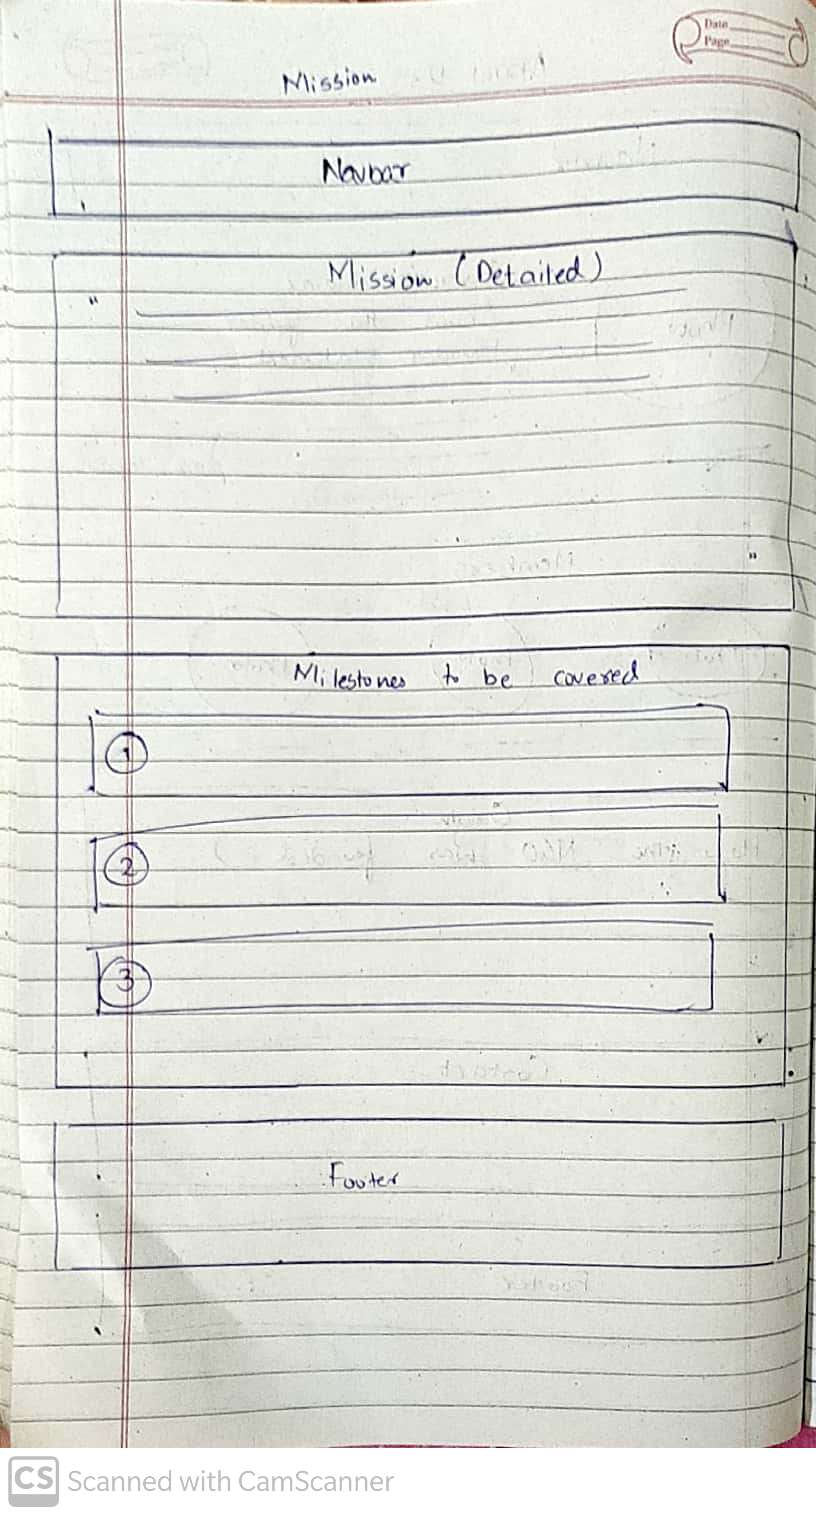 Date
Page
Mission
Navbar
Mission (Detailed)
"
"
Milestones to be covered
1
2
3
Footer
CS Scanned with CamScanner